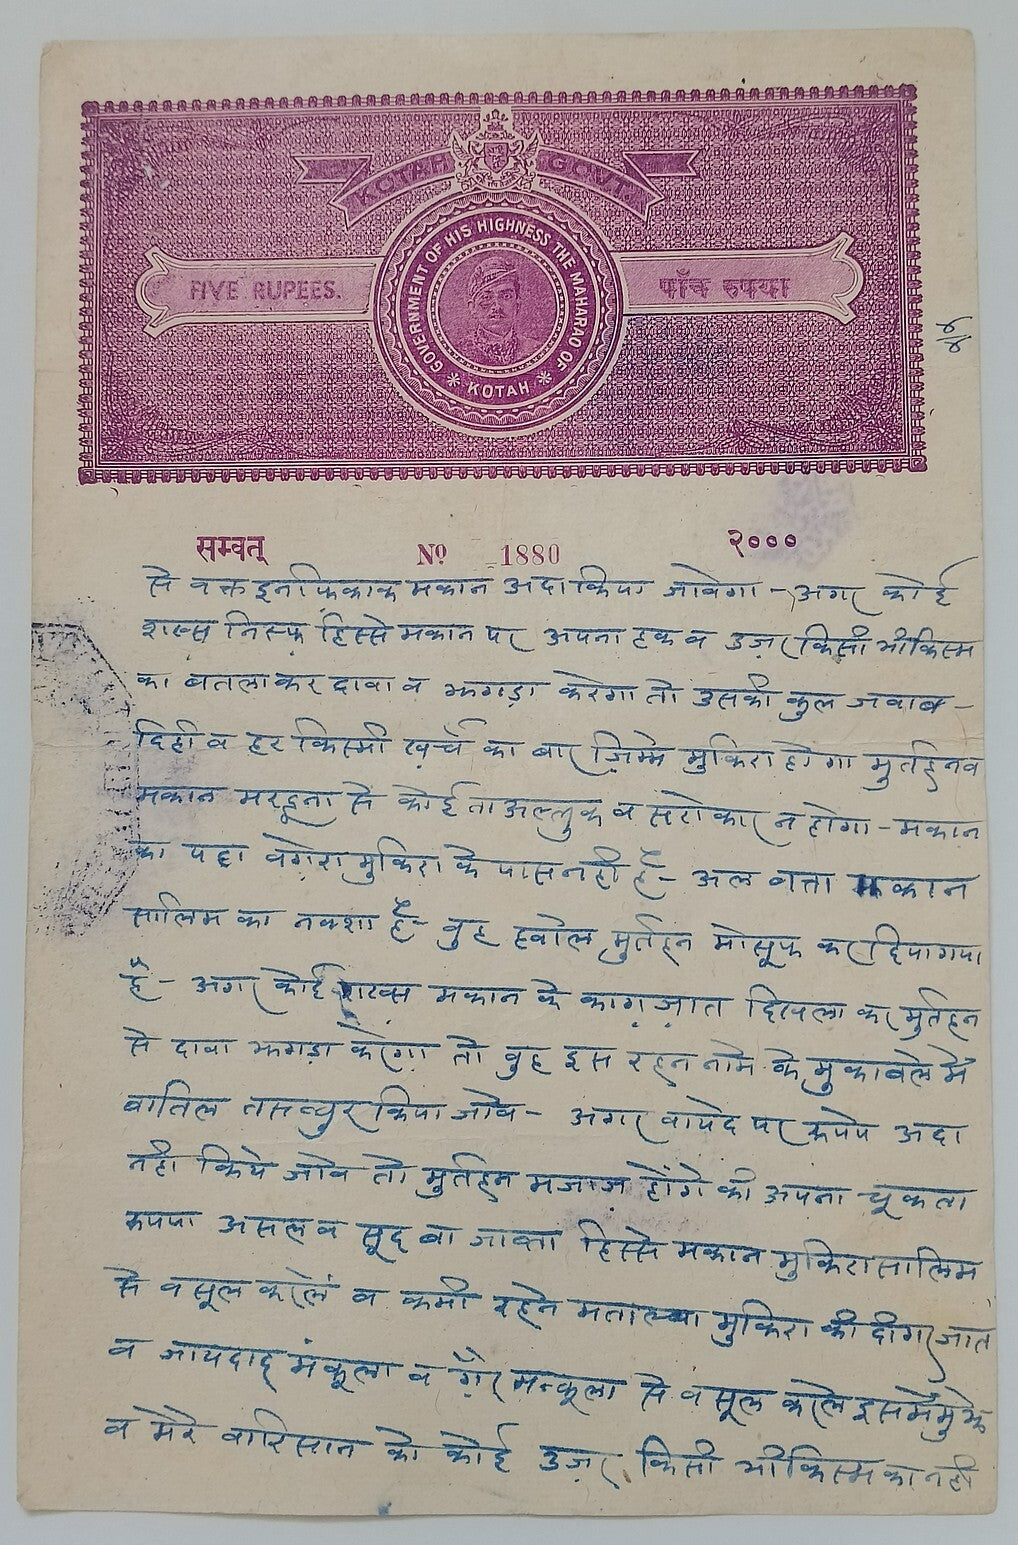 KOTAH GOVT
GOVERNMENT OF HIS HIGHNESS THE MAHARAO OF
* KOTAH *
FIVE RUPEES.
पाँच रुपया
सम्वत् No 1880 २०००
से वक्त इनफ़िकाक मकान अदा किया जावेगा - अगर कोई
शख्स निस्फ़ हिस्से मकान पर अपना हक व उज़र किसी भी किस्म
का बतलाकर दावा व झगड़ा करेगा तो उसकी कुल जवाब-
दिही व हर किस्मी ख़र्चे का बार ज़िम्मे मुकिरा होगा मुर्तहन व
मकान मरहूना से कोई ताअल्लुक व सरोकार न होगा - मकान
का पट्टा वगेरा मुकिरा के पास नही है - अलबत्ता मकान
सालिम का नक्शा है - वुह हवाले मुर्तहन मोसूफ कर दिया गया
है - अगर कोई शख्स मकान के काग़ज़ात दिखला कर मुर्तहन
से दावा झगड़ा करेगा तो वुह इस रहन नामे के मुकाबले में
बातिल तसव्वुर किया जावे - अगर वायदे पर रूपये अदा
नही किये जावे तो मुर्तहन मजाज होंगे की अपना चूकता
रूपया असल व सूद बा जाब्ता हिस्से मकान मुकिरा सालिम
से वसूल करलें व कमी रहने मतालबा मुकिरा की दीगर जात
व जायदाद मंकूला व ग़ैर मन्कूला से वसूल करले इसमें मुझे
व मेरे वारिसान को कोई उज़र किसी भी किस्म का नही